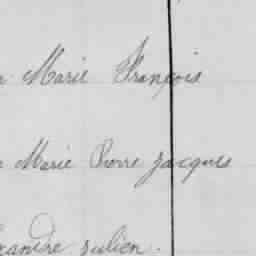 Marie François
Marie Pierre Jacques
xandre julien.